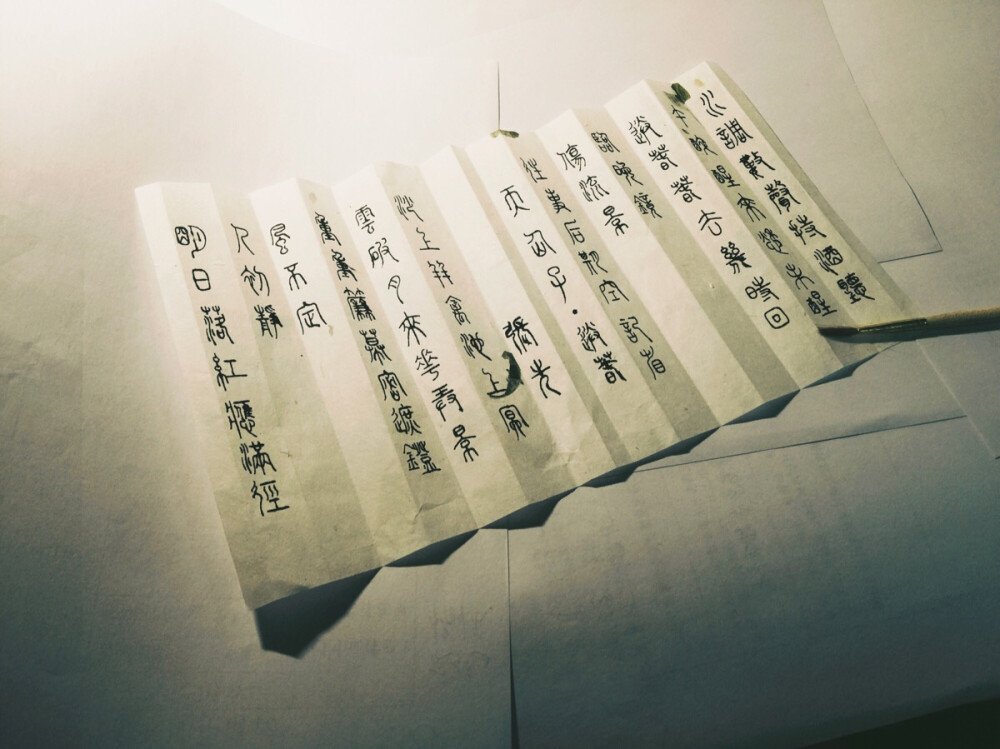 水調數聲持酒聽
午醉醒來愁未醒
送春春去幾時回
臨晚鏡
傷流景
往事后期空記省
天仙子·送春
張先
沙上並禽池上冥
雲破月來花弄景
重重簾幕密遮鐙
風不定
人初靜
明日落紅應滿徑